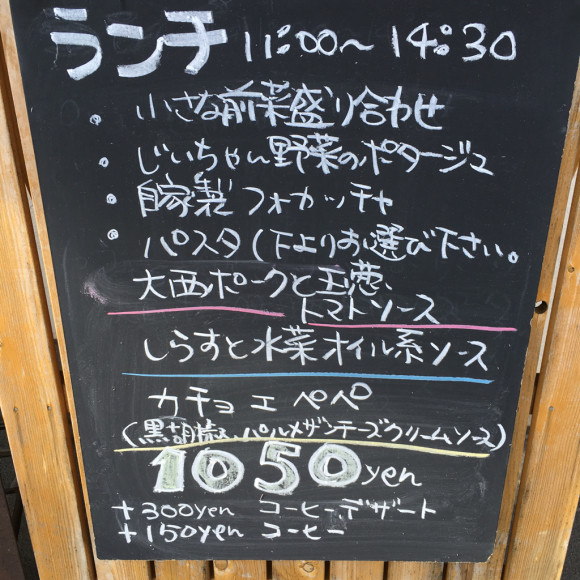 ランチ 11:00〜14:30
・小さな前菜盛り合わせ
・じいちゃん野菜のポタージュ
・自家製フォカッチャ
・パスタ(下よりお選び下さい。
大西ポークと玉葱、
トマトソース
しらすと水菜オイル系ソース
カチョエペペ
(黒胡椒、パルメザンチーズクリームソース)
1050yen
+300yen コーヒー、デザート
+150yen コーヒー